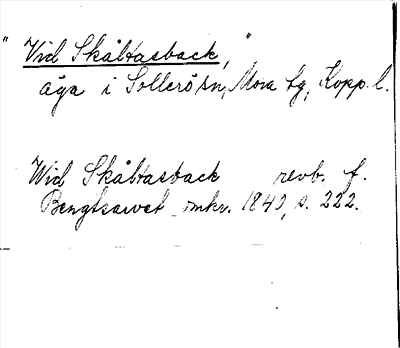 "Vid Skåltasback,"
äga i Sollerö sn, Mora tg, Kopp. l.
Wid Skåltasback revb. f.
Bengtsarvet omkr. 1840, s. 222.